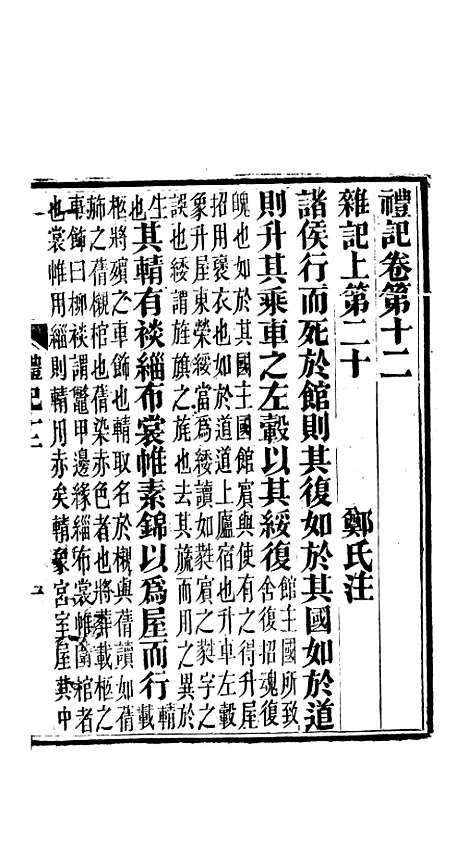 禮記卷第十二
雜記上第二十 鄭氏注
諸侯行而死於館則其復如於其國如於道
則升其乘車之左轂以其綏復館主國所致
舍復招魂復
魄也如於其國主國館賓與使有之得升屋
招用褒衣也如於道道上廬宿也升車左轂
象升屋東榮綏當爲緌讀如蕤賓之蕤字之
誤也緌謂旌旗之旄也去其旒而用之異於
生也其輤有裧緇布裳帷素錦以爲屋而行輤
載
柩將殯之車飾也輤取名於櫬與蒨讀如蒨
斾之蒨櫬棺也蒨染赤色者也將葬載柩之
車飾曰柳裧謂鼈甲邊緣緇布裳帷圍棺者
也裳帷用緇則輤用赤矣輤象宮室屋其中
禮記十二